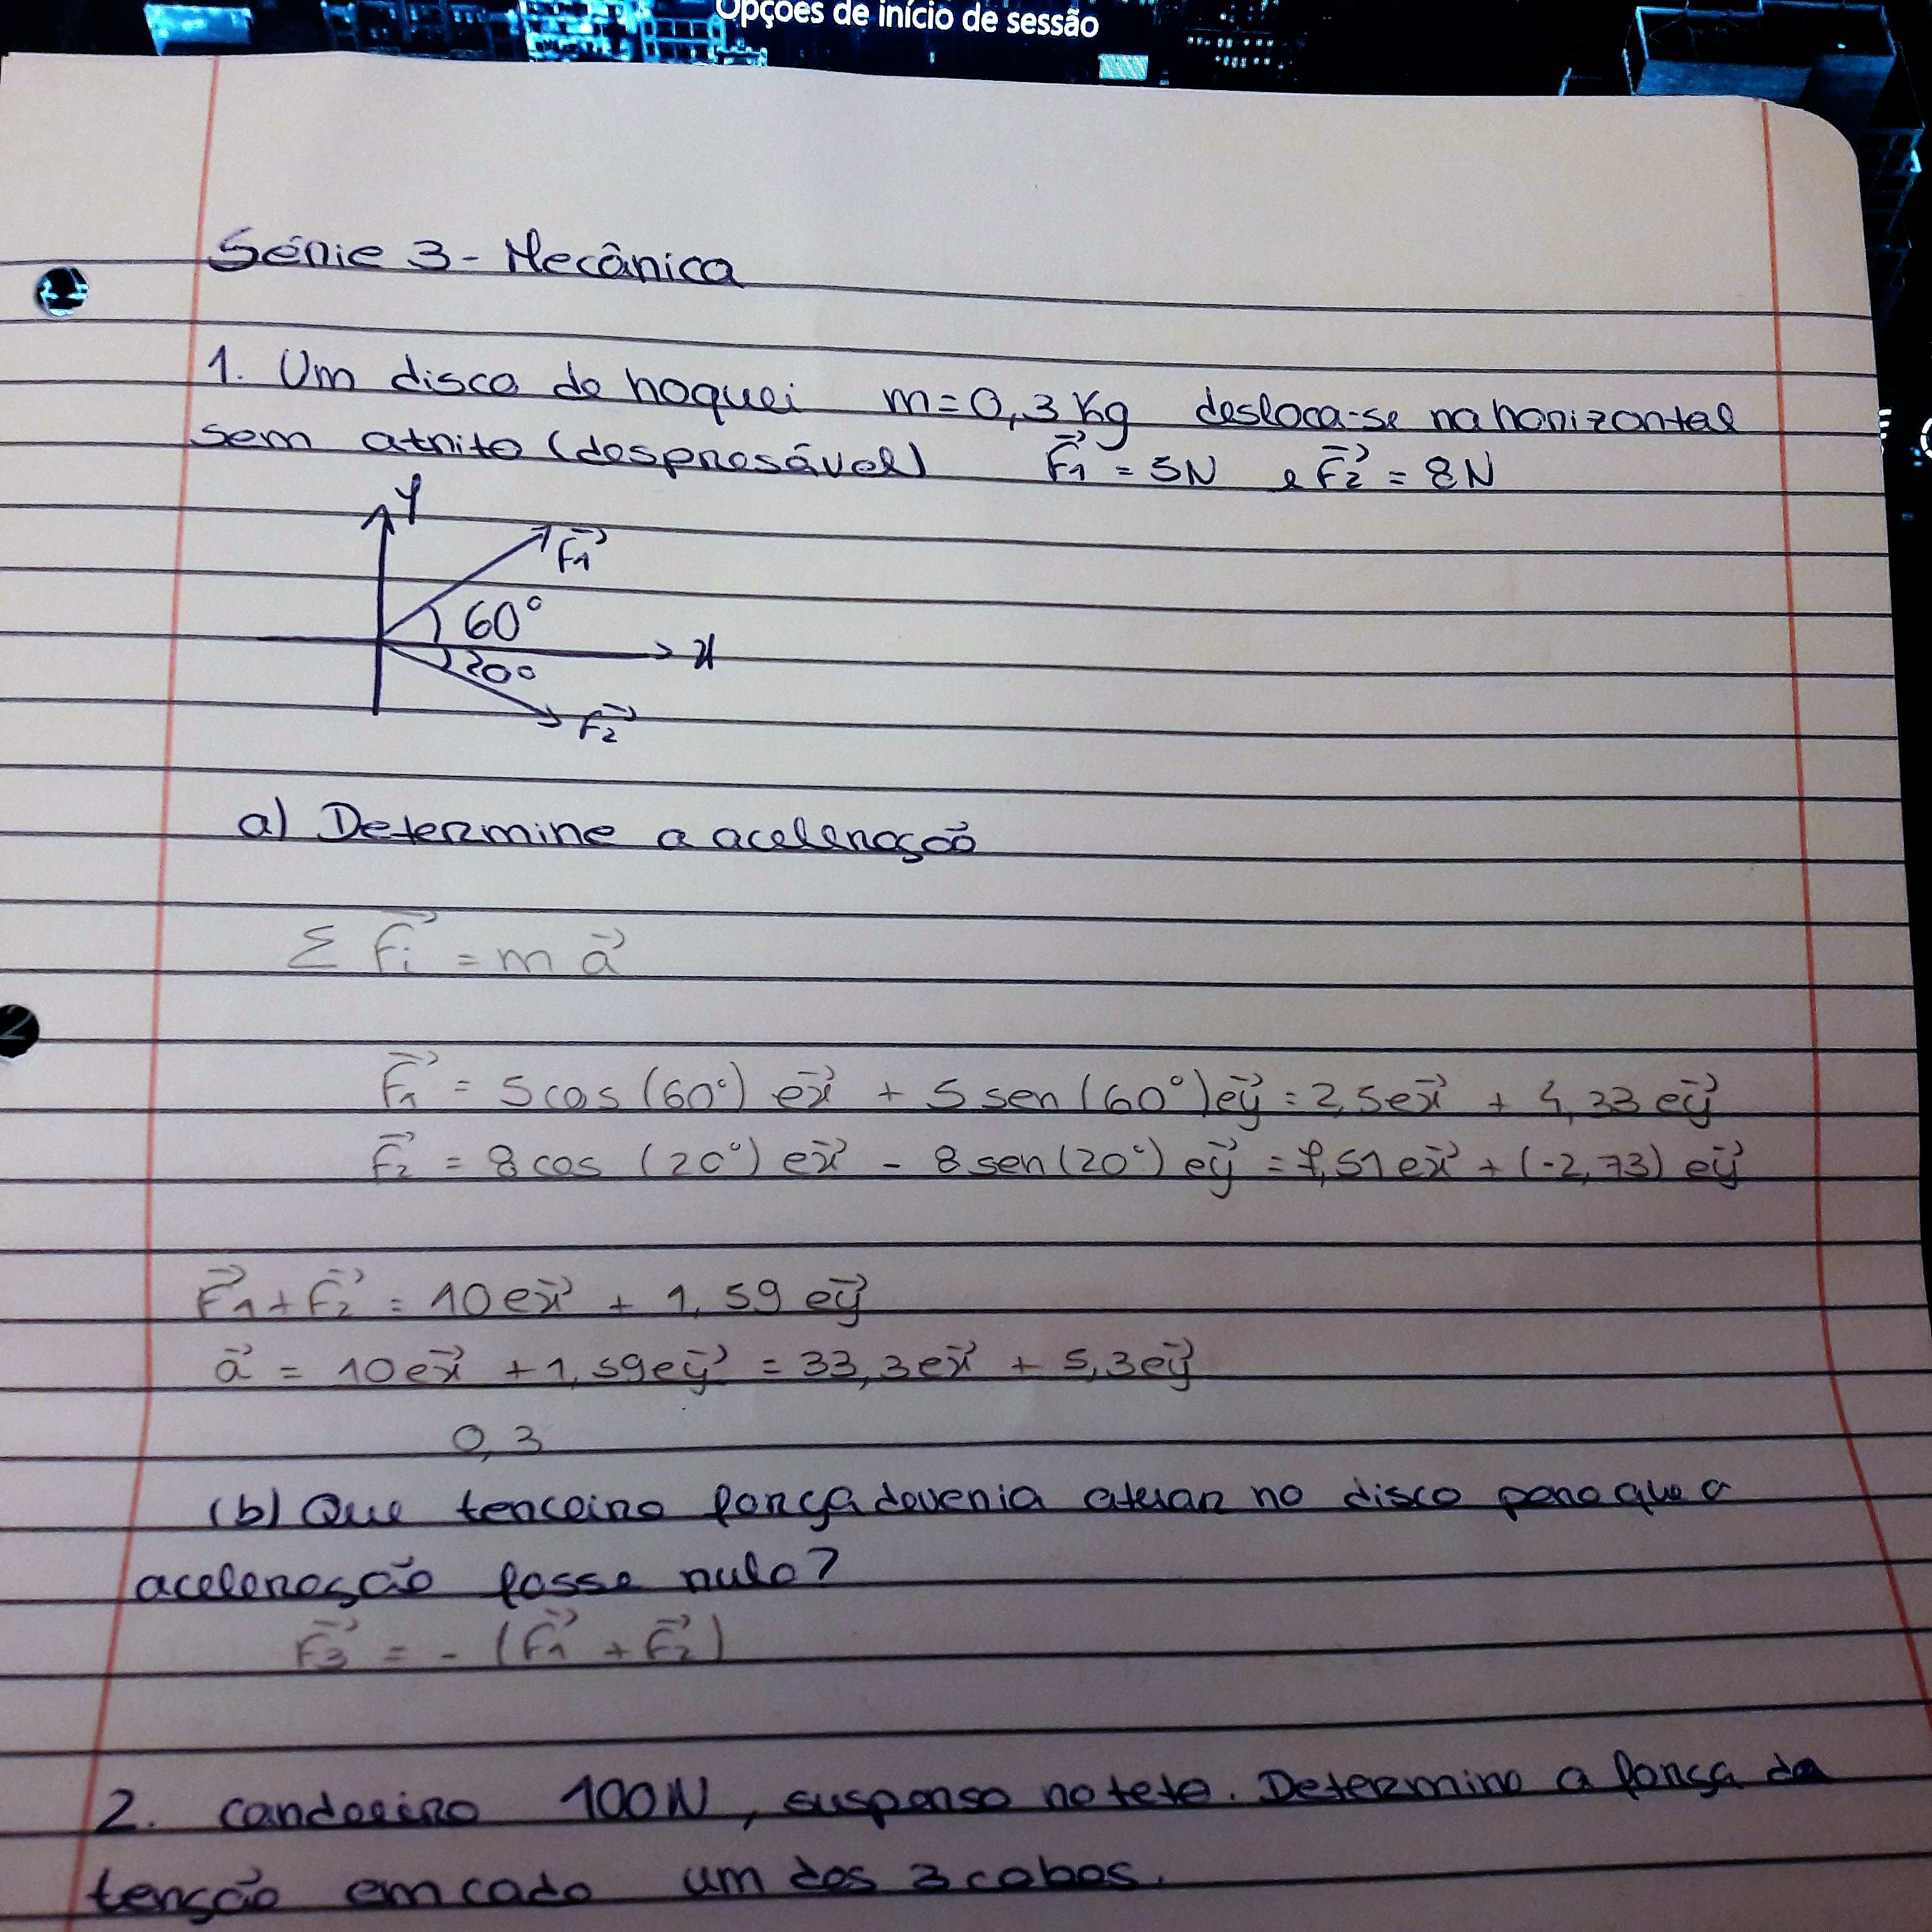 Opções de início de sessão
Série 3 - Mecânica
1. Um disco de hoquei m = 0,3 Kg desloca-se na horizontal
sem atrito (despresável) F₁⃗ = 5N e F₂⃗ = 8N
y
F₁⃗
60°
x
20°
F₂⃗
a) Determine a aceleração
Σ Fᵢ⃗ = m a⃗
F₁⃗ = 5 cos (60°) ex⃗ + 5 sen (60°) ey⃗ = 2,5 ex⃗ + 4,33 ey⃗
2
F₂⃗ = 8 cos (20°) ex⃗ - 8 sen (20°) ey⃗ = 7,51 ex⃗ + (-2,73) ey⃗
F₁⃗ + F₂⃗ = 10 ex⃗ + 1,59 ey⃗
a⃗ = 10 ex⃗ + 1,59 ey⃗ = 33,3 ex⃗ + 5,3 ey⃗
0,3
(b) Que terceira força deveria atuar no disco para que a
aceleração fosse nula?
F₃⃗ = - (F₁⃗ + F₂⃗)
2. candeeiro 100N, suspenso no teto. Determine a força da
tensão em cada um dos 3 cabos.